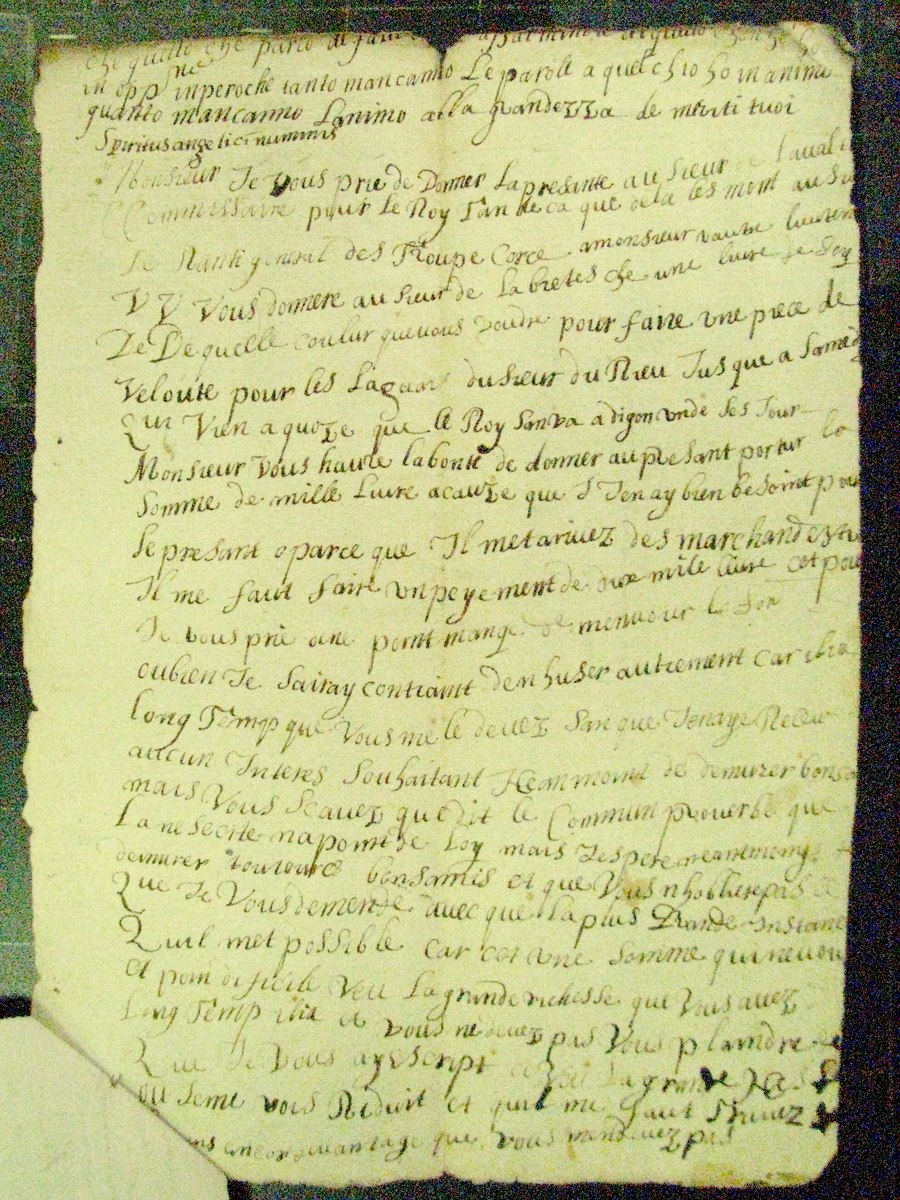 che quelle che parco di
in opp inperoche tanto mancanno Le parole a quel chio ho in animo
quanto mancanno Lanimo alla grandezza de meriti tuoi
Spiritus angelici numinis
Monsieur Je Vous prie de Donner La presante au sieur de laval
Commissaire pour le Roy Tan de ca que dela les mont au
general des Troupe Corce amonsieur vautre lieuten
V V Vous donnere au sieur de la bretes che une livre de Soy
De De quelle coulur que vous voudre pour faire une piece de
Veloute pour les du sieur du Rieu Jus que a Samedy
Qui Vien a quoze que le Roy sanva a digon unde ses Jour
Monsieur vous haure la bonte de donner au presant portur la
somme de mille Livre acauze que J Jenay bien besoint pour
le presant aparce que Il metarivez des marchand
Il me faut faire un peyement de dux mile livre cet pour
Je vous prie point manqe de
oubien Je sairay contraint denhuser autrement car
long Temp que Vous me le devez san que Jenaye Receu
aucun Interes Souhaitant Neanmoint de demurer bons
mais Vous scavez que dit le Commun proverbe que
La nesecite na point de Loy mais Jespere neantmoing
demurer toutours bonsamis et que Vous nhoblierepas ce
Que Je Vous demende avec que la plus Grande Instance
Quil met possible car cet une somme qui ne vou
et poin dificile veu La grande richesse que Vous avez
Long Temp et vous ne devez pas Vous plaindre
Que Je Vous ay escript La grande
ou Jeme vois Reduit et quil me faut
encor davantage que vous pas